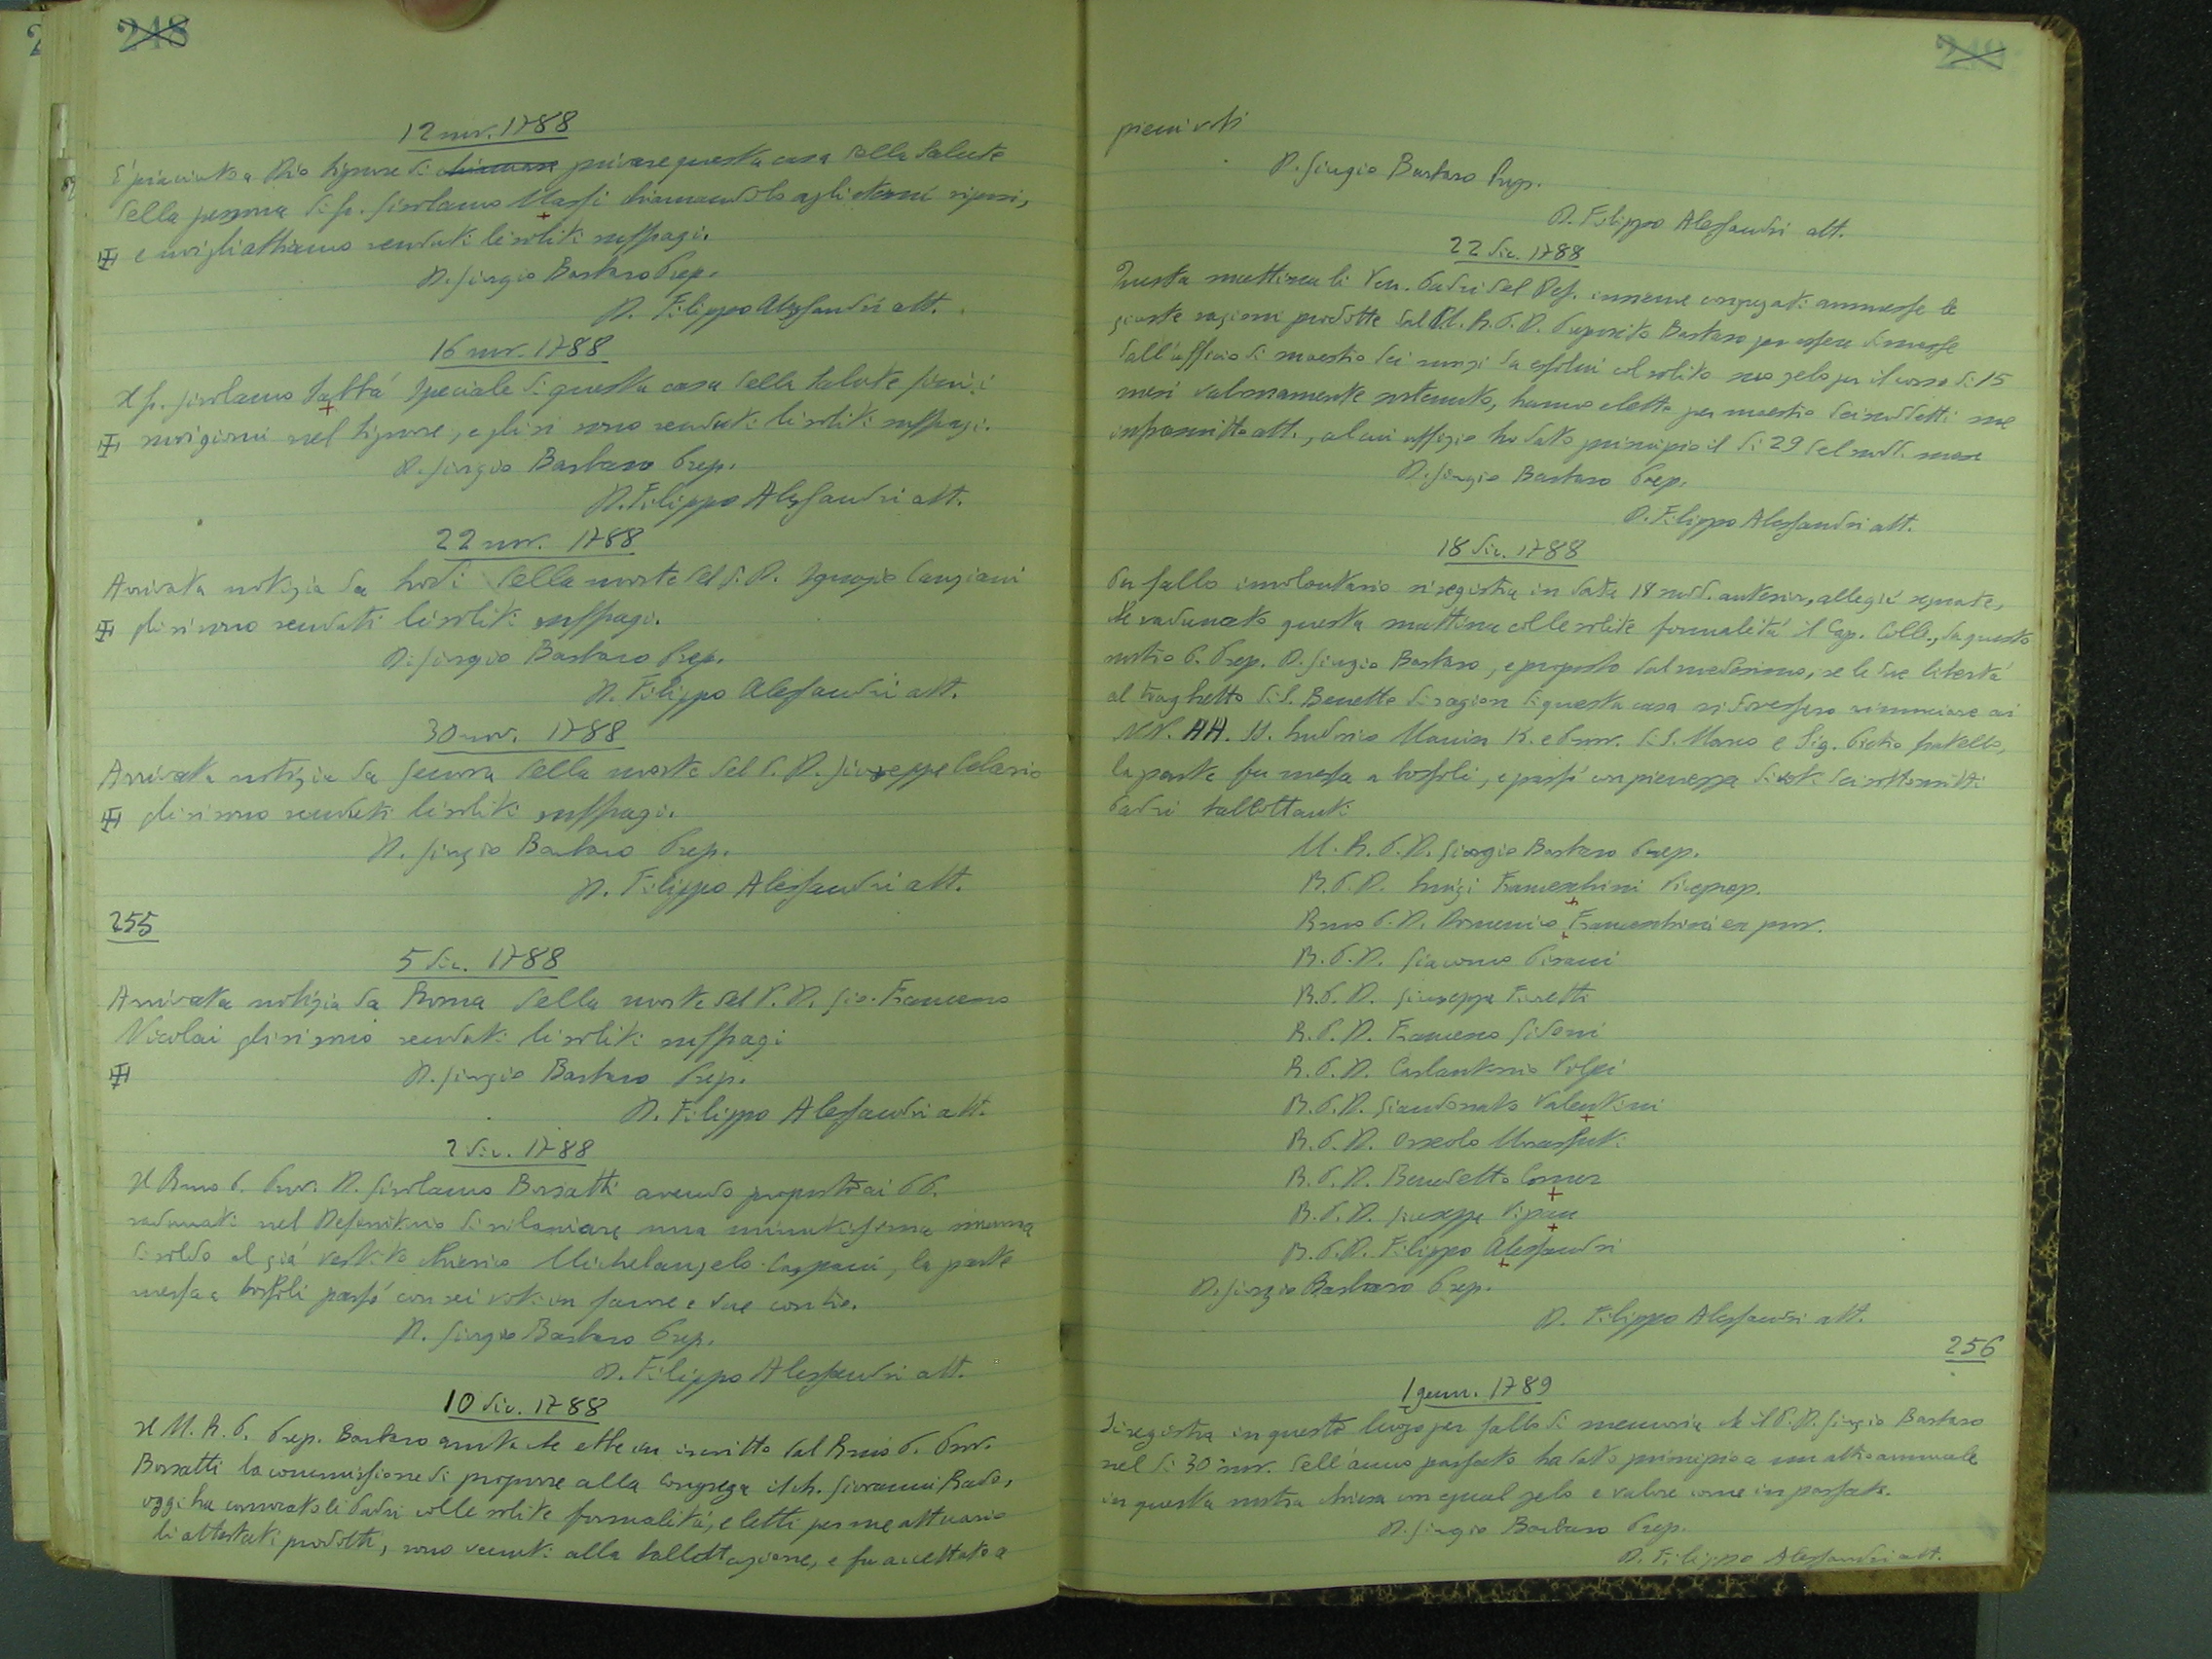 248
12 nov. 1788
È piaciuto a Dio Signore di chiamare privare questa casa della Salute
della persona di fr. Girolamo Massi chiamandolo agli eterni riposi,
e noi gli abbiamo renduti li soliti suffragi.
D. Giorgio Barbaro Prep.
D. Filippo Alessandri att.
16 nov. 1788
Il fr. Girolamo Sabbà Speciale di questa casa della Salute finì i
suoi giorni nel Signore, e gli si sono renduti li soliti suffragi.
D. Giorgio Barbaro Prep.
D. Filippo Alessandri att.
22 nov. 1788
Arrivata notizia da Lodi della morte del P. D. Ignazio Canziani
gli si sono renduti li soliti suffragi.
D. Giorgio Barbaro Prep.
D. Filippo Alessandri att.
30 nov. 1788
Arrivata notizia da Genova della morte del P. D. Giuseppe Celasio
gli si sono renduti li soliti suffragi.
D. Giorgio Barbaro Prep.
D. Filippo Alessandri att.
255
5 dic. 1788
Arrivata notizia da Roma della morte del P. D. Gio. Francesco
Nicolai gli si sono renduti li soliti suffragi
D. Giorgio Barbaro Prep.
D. Filippo Alessandri att.
2 dic. 1788
Il Rmo P. Prov. D. Girolamo Borsatti avendo proposto ai PP.
radunati nel Definitorio di rilasciare una minutissima summa
di soldo al già vestito chierico Michelangelo Gaspari, la parte
messa a bossoli passò con sei voti in favore e due contro.
D. Giorgio Barbaro Prep.
D. Filippo Alessandri att.
10 dic. 1788
Il M. R. P. Prep. Barbaro avuta che ebbe in iscritto dal Rmo P. Prov.
Borsatti la commissione di proporre alla Congrega il ch. Giovanni Rado,
oggi ha convocato li Padri colle solite formalità, e letti per me attuario
li attestati prodotti, sono venuti alla ballottazione, e fu accettato a
249
pieni voti
D. Giorgio Barbaro Prep.
D. Filippo Alessandri att.
22 dic. 1788
Questa mattina li Ven. Padri del Def. insieme congregati ammesse le
giuste ragioni prodotte dal M. R. P. D. Preposito Barbaro per essere dimesso
dall'uffizio di maestro dei novizi da esso lui col solito suo zelo per il corso di 15
mesi valorosamente sostenuto, hanno eletto per maestro dei suddetti me
infrascritto att., al cui uffizio ho dato principio il dì 29 del sudd. mese
D. Giorgio Barbaro Prep.
D. Filippo Alessandri att.
18 dic. 1788
Per fallo involontario si registra in data 18 sudd. anterior, alle già segnate,
che radunato questa mattina colle solite formalità il Cap. Coll., da questo
nostro P. Prep. D. Giorgio Barbaro, e proposto dal medesimo, se le due libertà
al traghetto di S. Benetto di ragion di questa casa si dovessero rinunciare ai
NN. HH. S. Ludovico Manin K. e Prov. di S. Marco e Sig. Pietro fratello,
la parte fu messa a bossoli, e passò con pienezza di voti dei sottoscritti
Padri ballottanti
M. R. P. D. Giorgio Barbaro Prep.
R. P. D. Luigi Franceschini Viceprep.
Rmo P. D. Domenico Franceschini ex prov.
R. P. D. Giacomo Pisani
R. P. D. Giuseppe Furetti
R. P. D. Francesco Gidoni
R. P. D. Carlantonio Volpi
R. P. D. Giandonato Valentini
R. P. D. Orseolo
R. P. D. Benedetto Corner
R. P. D. Giuseppe Pipan
R. P. D. Filippo Alessandri
D. Giorgio Barbaro Prep.
D. Filippo Alessandri att.
256
1 genn. 1789
Si registra in questo luogo per fallo di memoria che il P. D. Giorgio Barbaro
nel dì 30 nov. dell'anno passato ha dato principio a un altro annuale
in questa nostra chiesa con egual zelo e valore come in passato.
D. Giorgio Barbaro Prep.
D. Filippo Alessandri att.